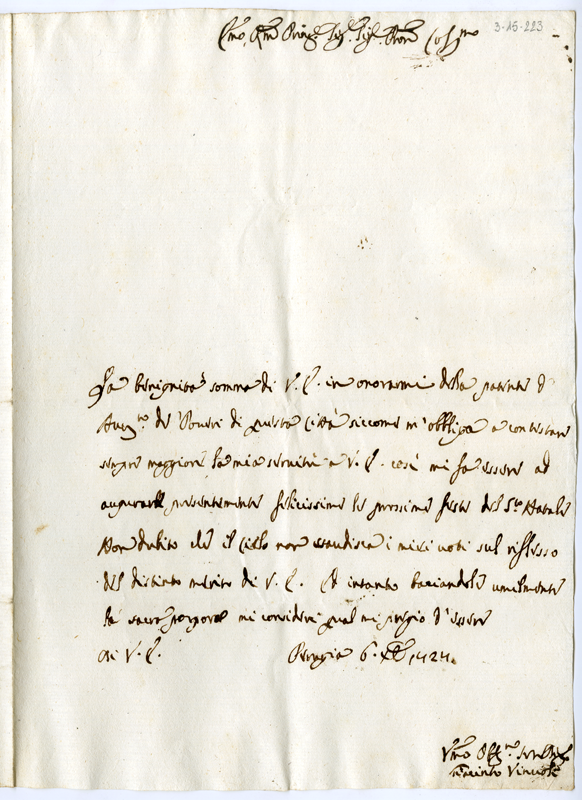 Emo, e Rmo Princ. Sig. Sig. Prone Colmo
3-15-223
La benignità somma di V. E. in onorarmi della patente d'
Avvto de Poveri di questa Città siccome m'obbliga a contestare
sempre maggiore la mia servitù a V. E. così mi fa essere ad
augurarle presentemente felicissime le prossime feste del Sto Natale
Non dubito che il Cielo non esaudisca i miei voti sul riflesso
del distinto merito di V. E. Ed intanto baciandole umilmente
la sacra porpora mi considero qual mi pregio d'essere
Di V. E. Perugia 6
Vmo Giacinto Vincioli